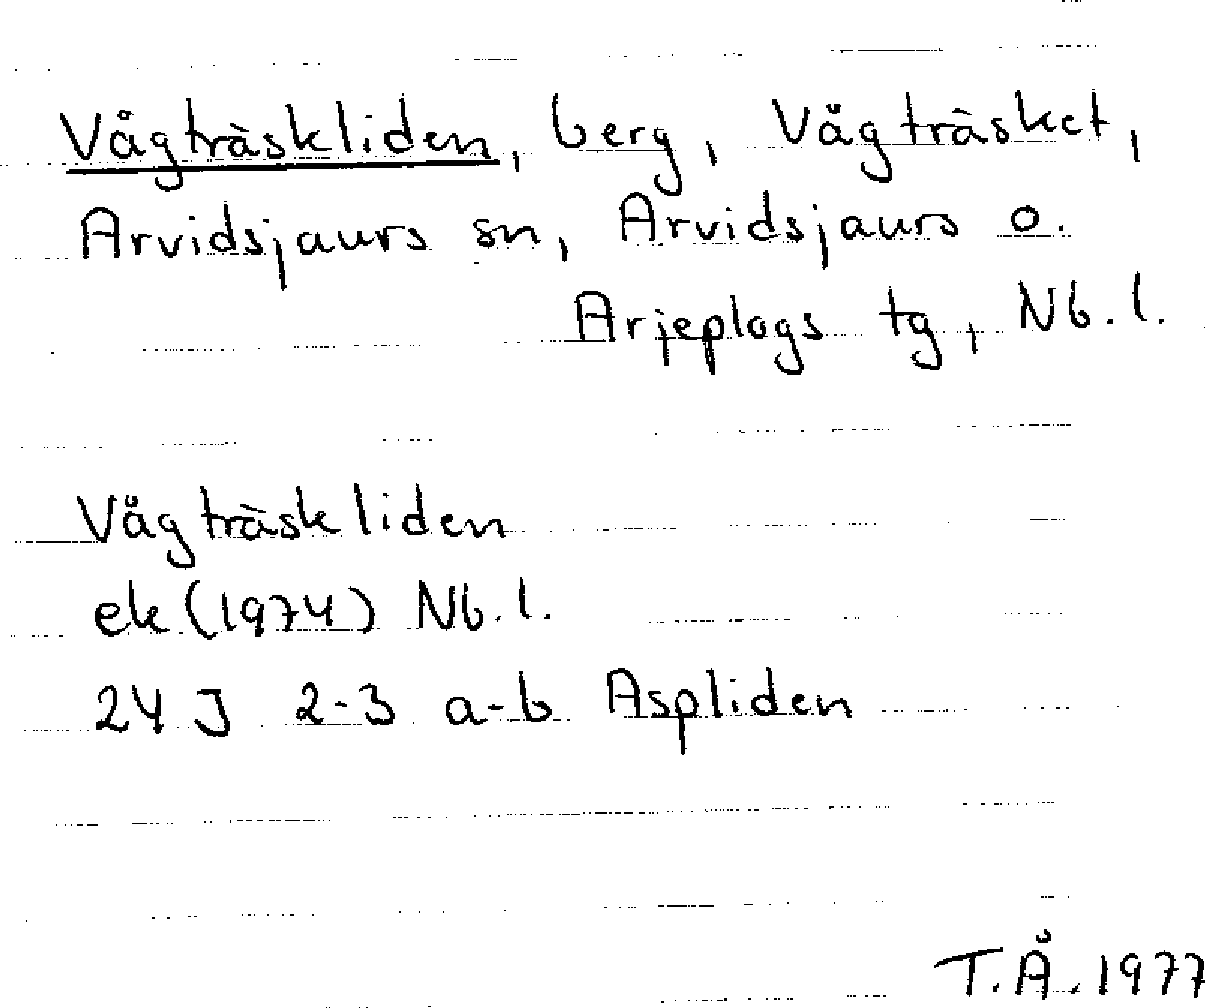 Vågträskliden, berg, Vågträsket,
Arvidsjaurs sn, Arvidsjaurs o.
Arjeplogs tg, Nb.l.
Vågträskliden
ek (1974) Nb.l.
24 J 2-3 a-b Aspliden
T.Å. 1977